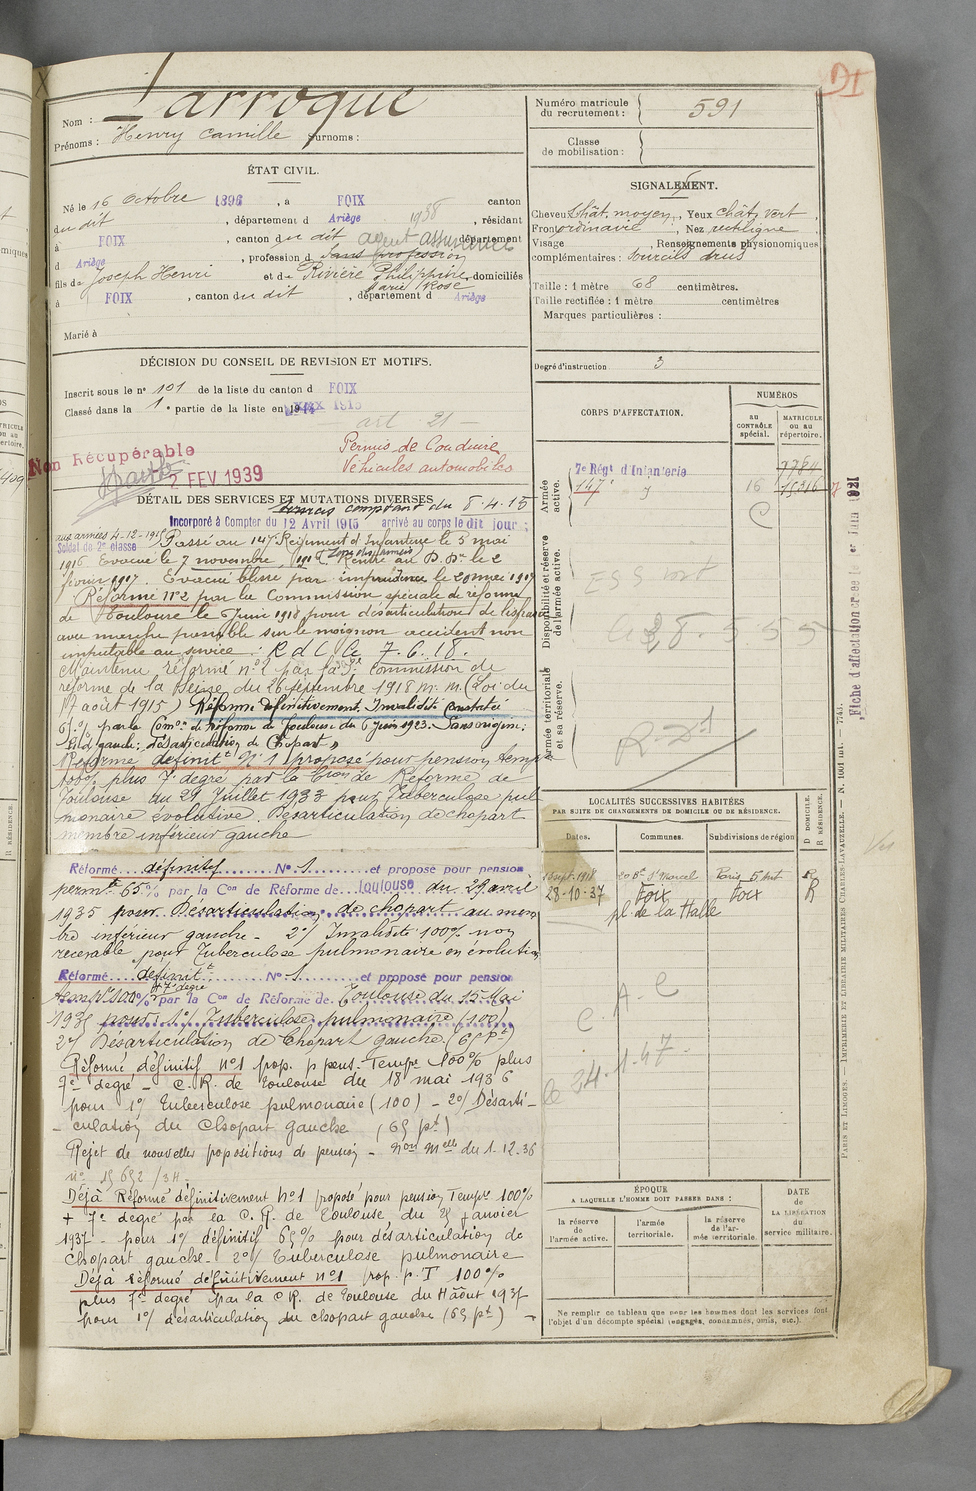 DI
Nom : Larroque
Prénoms : Henry Camille Surnoms :
Numéro matricule
du recrutement : 591
Classe
de mobilisation :
ÉTAT CIVIL.
Né le 16 Octobre 1896, à FOIX canton
du dit, département d Ariège 1938, résidant
à FOIX, canton du dit agent assurances département
d Ariège, profession d sans profession
fils de Joseph Henri et de Rivière Philippine domiciliés
Marie Rose
à FOIX, canton du dit, département d Ariège
Marié à
SIGNALEMENT.
Cheveux chât. moyen, Yeux chât. vert
Front ordinaire, Nez rectiligne
Visage , Renseignements physionomiques
complémentaires : Sourcils drus
Taille : 1 mètre 68 centimètres.
Taille rectifiée : 1 mètre centimètres
Marques particulières :
Degré d'instruction 3
DÉCISION DU CONSEIL DE REVISION ET MOTIFS.
Inscrit sous le n° 101 de la liste du canton d FOIX
Classé dans la 1e partie de la liste en 1915
art 21
Permis de Conduire
Véhicules automobiles
Non Récupérable
2 FEV 1939
CORPS D'AFFECTATION.
NUMÉROS
au
CONTRÔLE
spécial.
MATRICULE
ou au
répertoire.
Armée
active.
7e Régt d'Infanterie 7784
147e 16 15316
C
Disponibilité et réserve
de l'armée active.
Armée territoriale
et sa réserve.
Fiche d'affectation créée le 1er Juin 1921
DÉTAIL DES SERVICES ET MUTATIONS DIVERSES
compter du 8.4.15
Incorporé à Compter du 12 Avril 1915 arrivé au corps le dit jour ;
aux armées 4-12-1915
Soldat de 2e classe Passé au 147e Régiment d'Infanterie le 5 mai
1916 Evacué le 7 novembre 1916 Zone des armées Rentré au D. Dre le 2
février 1917. Evacué blessé par imprudence le 20 mai 1917
Réformé N°2 par la Commission spéciale de réforme
de Toulouse le 5 Juin 1918 pour désarticulation de lisfranc
avec marche pénible sur le moignon accident non
imputable au service : R d C le 7.6.18.
Maintenu réformé n° 2 par la 3e Commission de
réforme de la Seine du 26 septembre 1918 m. m. (Loi du
17 août 1915) Réformé définitivement. Invalidité constatée
65% par la Comon de Réforme de Toulouse du 6 Juin 1923. Sans origine.
Pied gauche, désarticulation de Chopart »
Réformé définitt N° 1 proposé pour pension temp
100% plus 7e degré par la Cion de Réforme de
Toulouse du 29 Juillet 1933 pour Tuberculose pul
monaire évolutive. Désarticulation de chopart
membre inférieur gauche
Réformé définitif N° 1 et proposé pour pension
permte 65% par la Con de Réforme de Toulouse du 29 avril
1935 pour Désarticulation de chopart au mem
bre inférieur gauche - 2°/ Invalidité 100% non
recevable pour Tuberculose pulmonaire en évolution
Réformé définitt N° 1 et proposé pour pension
tempre 100% + 7e degré par la Con de Réforme de Toulouse du 15 Mai
1935 pour : 1°/ Tuberculose pulmonaire (100)
2°/ Désarticulation de Chopart gauche. (65 pt)
Réformé définitif n°1 prop. p pens. Tempre 100% plus
7e degré - C. R. de Toulouse du 18 mai 1936
pour 1°/ Tuberculose pulmonaire (100) - 2°/ Désarti-
- culation du Chopart gauche (65 pt)
Rejet de nouvelles propositions de pension - Non Melle du 1.12.36
n° 15 652 / 3H.
Déjà Réformé définitivement n°1 proposé pour pension Tempre 100%
+ 7e degré par la C. R. de Toulouse du 25 Janvier
1937 - pour 1°/ définitif 65% pour désarticulation de
Chopart gauche - 2°/ Tuberculose pulmonaire
Déjà réformé définitivement n°1 prop. p. T 100%
plus 7e degré par la C R. de Toulouse du 4 Août 1937
pour 1°/ désarticulation du chopart gauche (65 pt) -
LOCALITÉS SUCCESSIVES HABITÉES
PAR SUITE DE CHANGEMENTS DE DOMICILE OU DE RÉSIDENCE.
Dates. Communes. Subdivisions de région
D DOMICILE.
R RÉSIDENCE.
13 sept. 1918 20 Bd St Marcel Paris 5 Art R
28-10-37 Foix Foix R
pl. de la Halle
ÉPOQUE
A LAQUELLE L'HOMME DOIT PASSER DANS :
la réserve
de
l'armée active.
l'armée
territoriale.
la réserve
de l'ar-
mée territoriale.
DATE
de
LA LIBÉRATION
du
service militaire.
Ne remplir ce tableau que pour les hommes dont les services font
l'objet d'un décompte spécial (engagés, condamnés, omis, etc.).
PARIS ET LIMOGES. — IMPRIMERIE ET LIBRAIRIE MILITAIRES CHARLES-LAVAUZELLE. — N. 1001 int. — 7745.